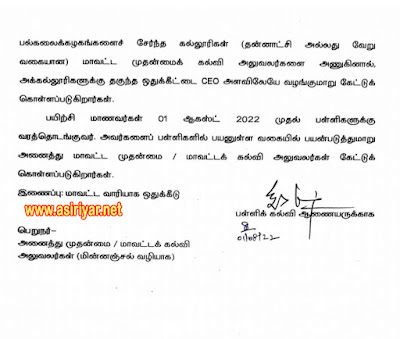 பல்கலைக்கழகங்களைச் சேர்ந்த கல்லூரிகள் (தன்னாட்சி அல்லது வேறு
வகையான) மாவட்ட முதன்மைக் கல்வி அலுவலர்களை அணுகினால்,
அக்கல்லூரிகளுக்கு தகுந்த ஒதுக்கீட்டை CEO அளவிலேயே வழங்குமாறு கேட்டுக்
கொள்ளப்படுகிறார்கள்.
பயிற்சி மாணவர்கள் 01 ஆகஸ்ட் 2022 முதல் பள்ளிகளுக்கு
வரத்தொடங்குவர். அவர்களைப் பள்ளிகளில் பயனுள்ள வகையில் பயன்படுத்துமாறு
அனைத்து மாவட்ட முதன்மை / மாவட்டக் கல்வி அலுவலர்கள் கேட்டுக்
கொள்ளப்படுகிறார்கள்.
இணைப்பு: மாவட்ட வாரியாக ஒதுக்கீடு
www.asiriyar.net
பள்ளிக் கல்வி ஆணையருக்காக
பெறுநர்-
அனைத்து முதன்மை / மாவட்டக் கல்வி
அலுவலர்கள் (மின்னஞ்சல் வழியாக)